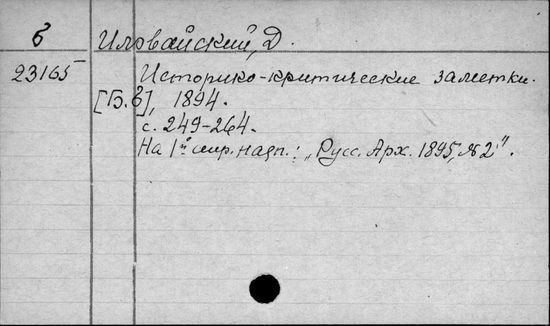 б Иловайский, Д.
23165 Историко-критические заметки.
[Б.в], 1894.
с. 249-264.
На 1ой стр. надп.: „Русс. Арх. 1895, №2".